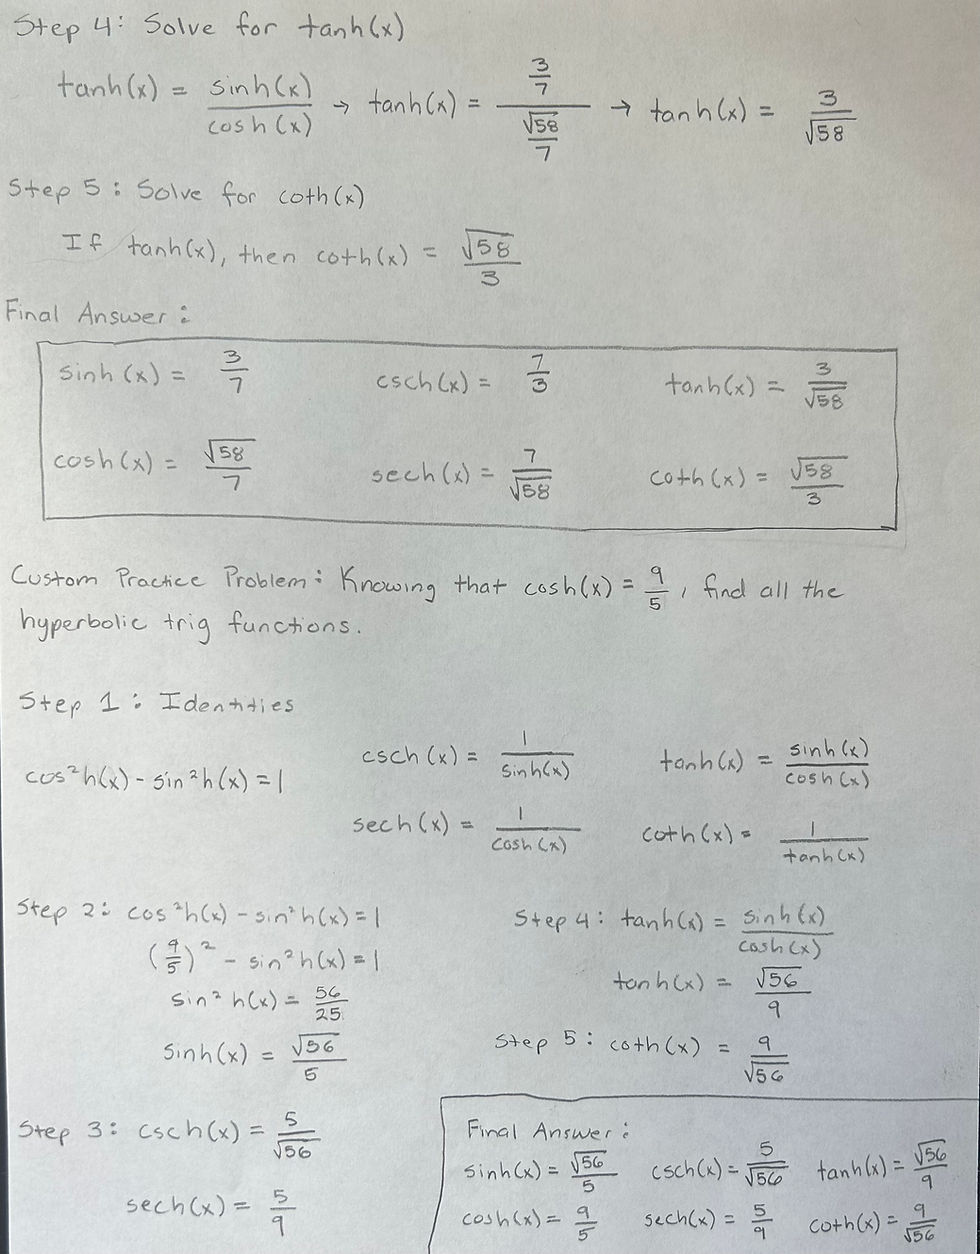 Step 4: Solve for tanh(x)
tanh(x) = sinh(x)/cosh(x) → tanh(x) = (3/7)/(√58/7) → tanh(x) = 3/√58
Step 5: Solve for coth(x)
If tanh(x), then coth(x) = √58/3
Final Answer:
sinh(x) = 3/7 csch(x) = 7/3 tanh(x) = 3/√58
cosh(x) = √58/7 sech(x) = 7/√58 coth(x) = √58/3
Custom Practice Problem: Knowing that cosh(x) = 9/5, find all the
hyperbolic trig functions.
Step 1: Identities
cos²h(x) - sin²h(x) = 1
csch(x) = 1/sinh(x) tanh(x) = sinh(x)/cosh(x)
sech(x) = 1/cosh(x) coth(x) = 1/tanh(x)
Step 2: cos²h(x) - sin²h(x) = 1
(9/5)² - sin²h(x) = 1
sin²h(x) = 56/25
sinh(x) = √56/5
Step 3: csch(x) = 5/√56
sech(x) = 5/9
Step 4: tanh(x) = sinh(x)/cosh(x)
tanh(x) = √56/9
Step 5: coth(x) = 9/√56
Final Answer:
sinh(x) = √56/5 csch(x) = 5/√56 tanh(x) = √56/9
cosh(x) = 9/5 sech(x) = 5/9 coth(x) = 9/√56